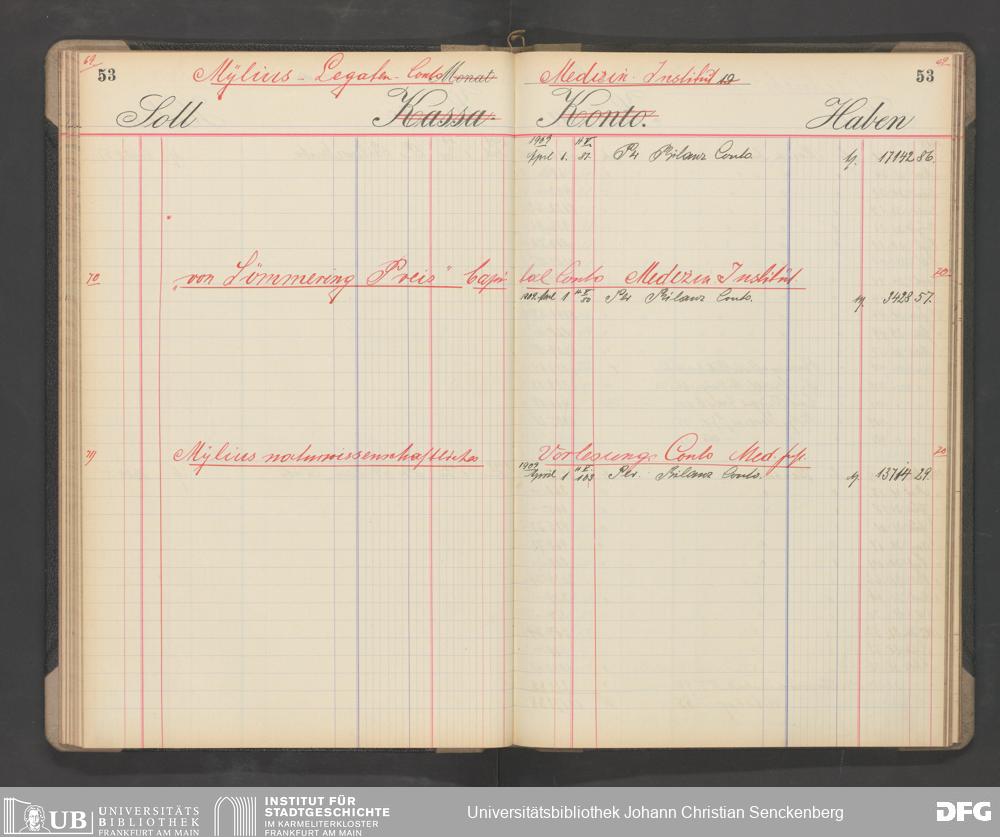 69. 53 Mÿlius - Legaten - Conto Monat Medizin - Institüt 19 53 69.
Soll Kassa- Konto. Haben
1909
April 1. 87. Per Bilanz Conto. M. 17142 86.
70 "von Sömmering Preis" Capital Conto Medizin Institüt. 70
1909 April 1 Per Bilanz Conto. M. 3428 57.
71 Mÿlius naturwissenschaftliches Vorlesungs Conto Med. Inst.
1909
April 1 103 Per Bilanz Conto. M. 13714 29.
UB UNIVERSITÄTS BIBLIOTHEK FRANKFURT AM MAIN
INSTITUT FÜR STADTGESCHICHTE IM KARMELITERKLOSTER FRANKFURT AM MAIN
Universitätsbibliothek Johann Christian Senckenberg
DFG